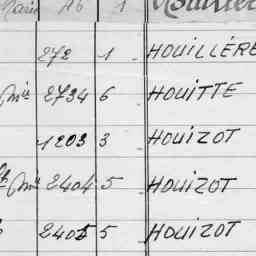 Marie 46 1
272 1 HOUILLÈRE
Mie 2734 6 HOUITTE
1203 3 HOUIZOT
Mie 2404 5 HOUIZOT
2405 5 HOUIZOT